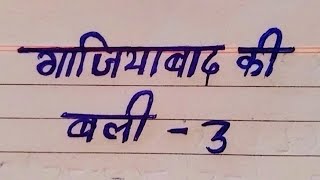 गाजियाबाद की
बली - 3